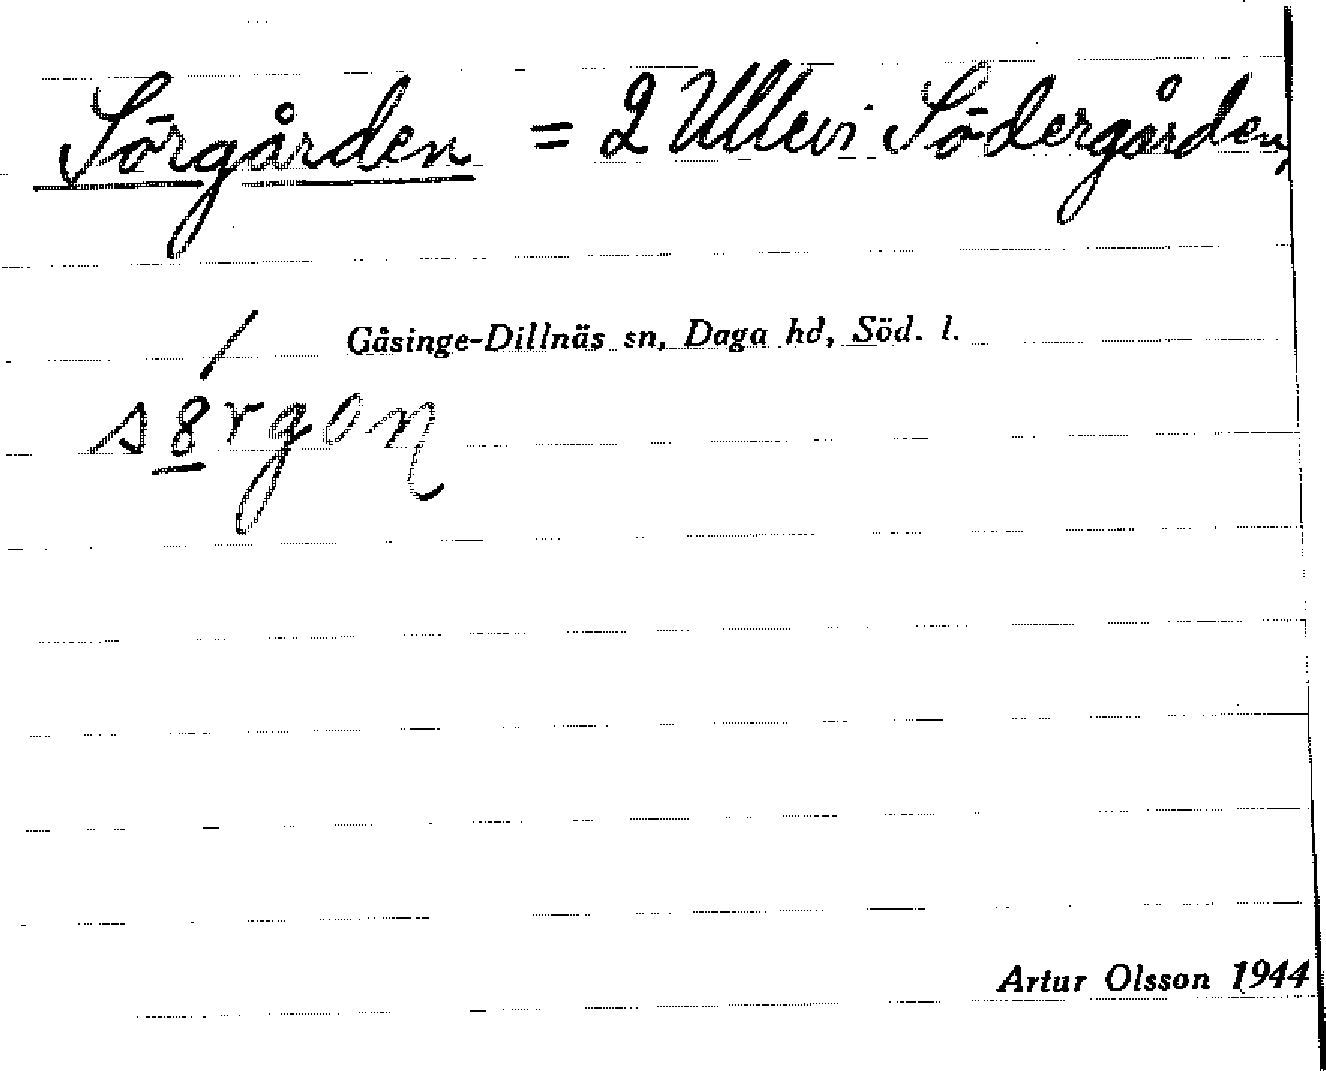 Sörgården = 2 Ullevi Södergården,
Gåsinge-Dillnäs sn, Daga hd, Söd. l.
s8rgoη
Artur Olsson 1944